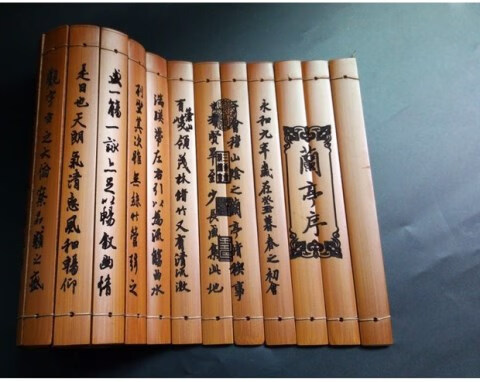 蘭亭序
永和九年歲在癸丑暮春之初會
于會稽山陰之蘭亭脩稧事
也羣賢畢至少長咸集此地
有崇山峻領茂林脩竹又有清流激
湍暎帶左右引以為流觴曲水
列坐其次雖無絲竹管弦之
盛一觴一詠亦足以暢叙幽情
是日也天朗氣清惠風和暢仰
觀宇宙之大俯察品類之盛